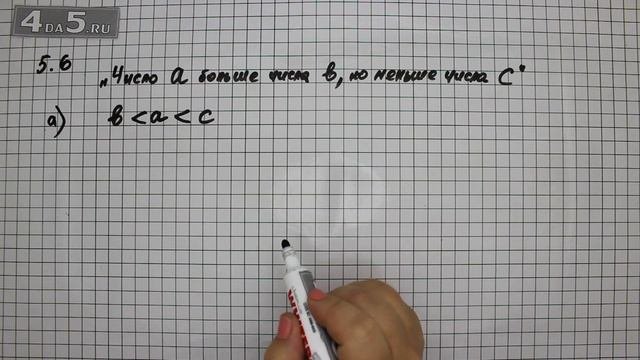 4DA5.RU
5.6 „Число a больше числа в, но меньше числа c"
а) в < a < c